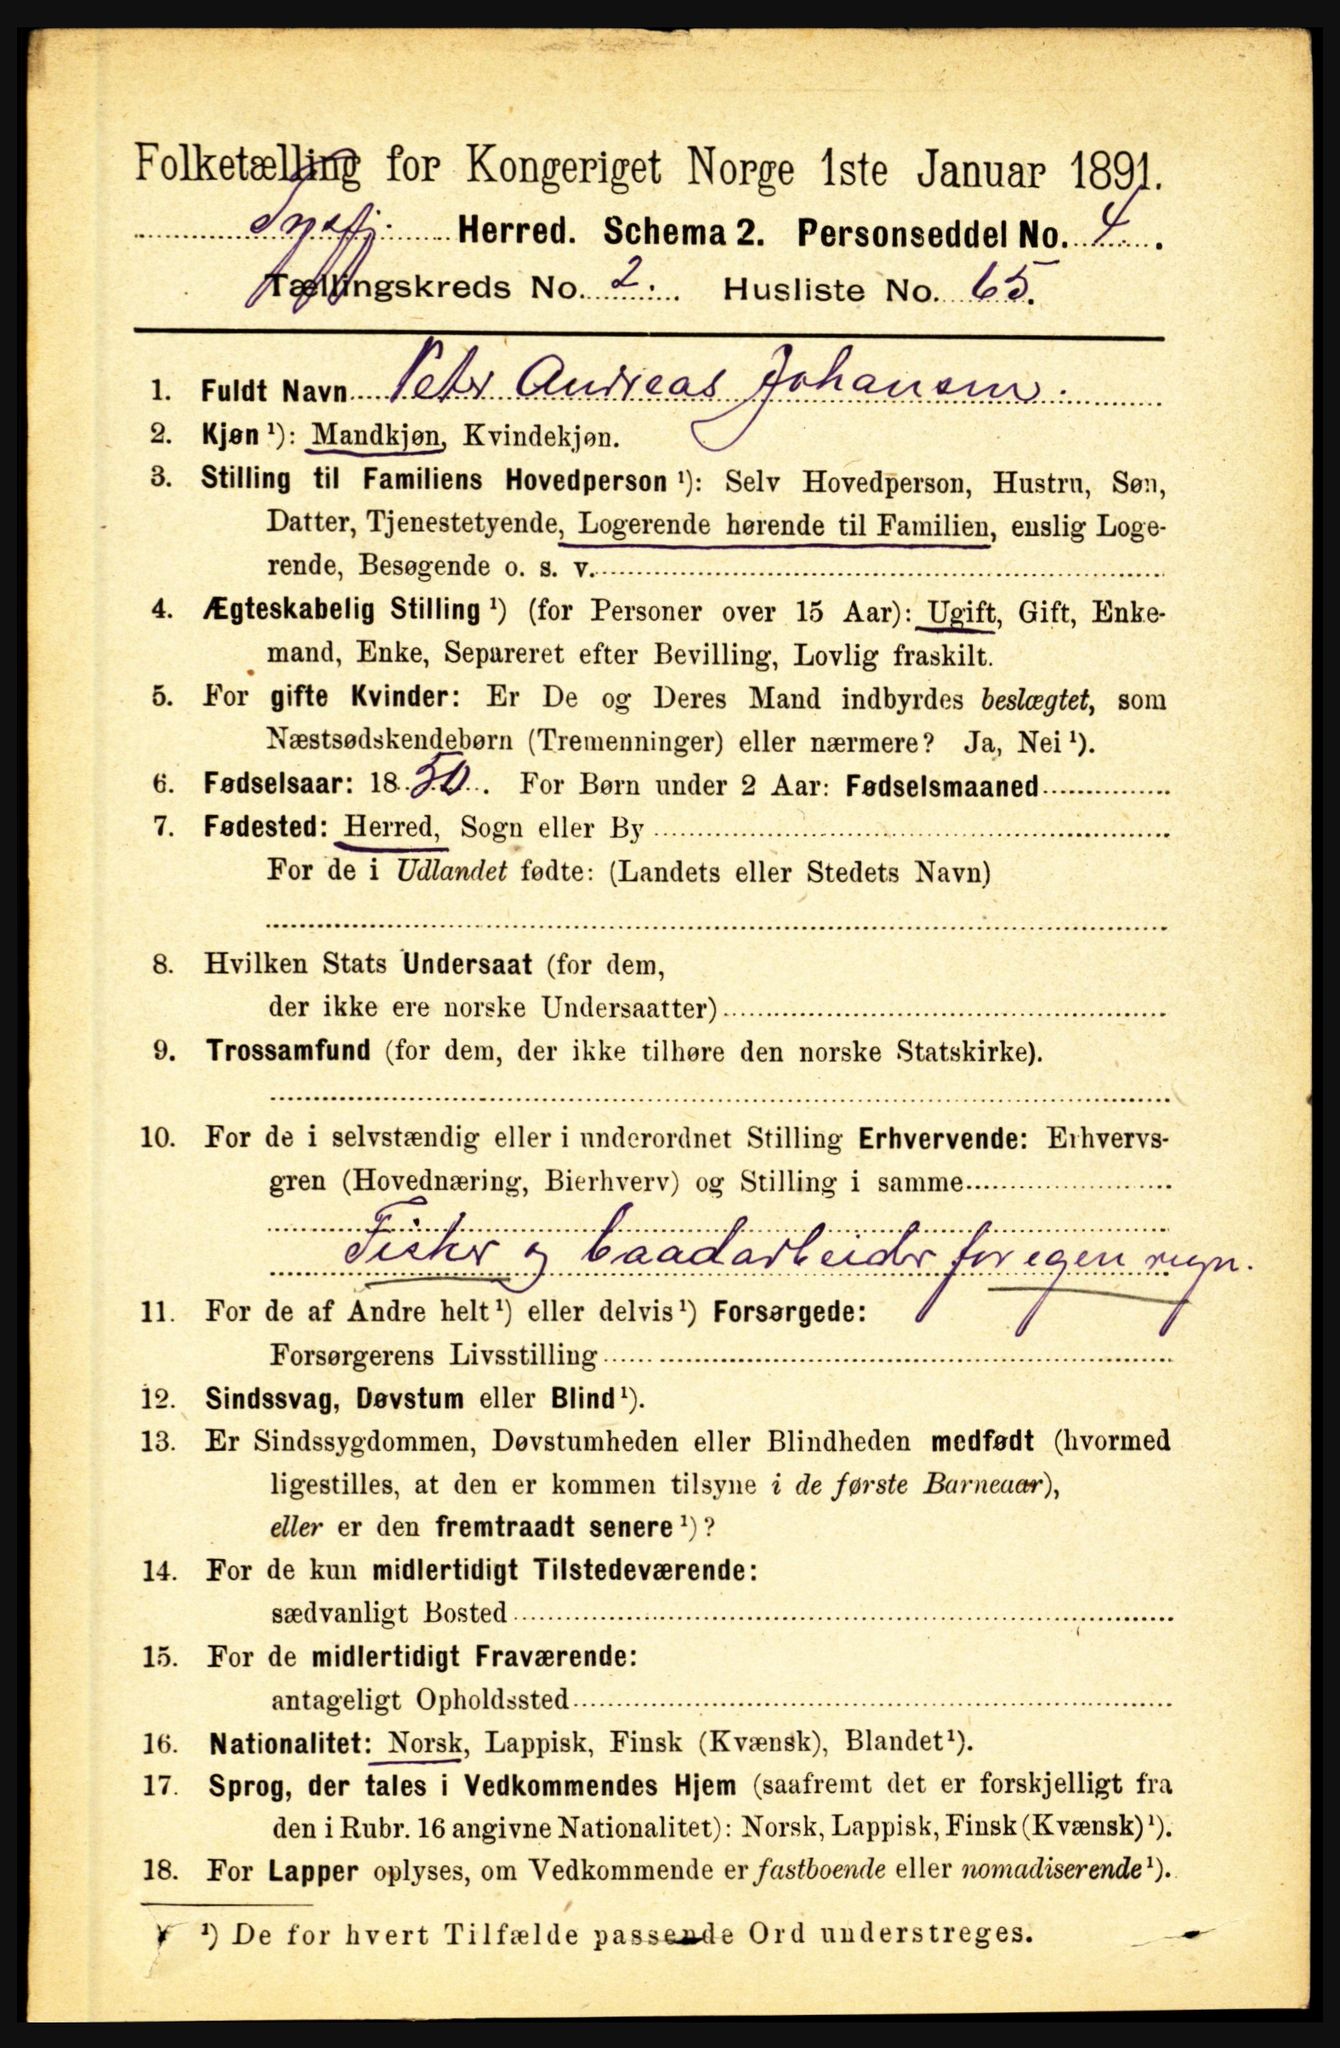 Folketælling for Kongeriget Norge 1ste Januar 1891.
Tysfj. Herred. Schema 2. Personseddel No. 4.
Tællingskreds No. 2. Husliste No. 65.
1. Fuldt Navn Peter Andreas Johansen.
2. Kjøn ¹): Mandkjøn, Kvindekjøn.
3. Stilling til Familiens Hovedperson ¹): Selv Hovedperson, Hustru, Søn,
Datter, Tjenestetyende, Logerende hørende til Familien, enslig Loge-
rende, Besøgende o. s. v.
4. Ægteskabelig Stilling ¹) (for Personer over 15 Aar): Ugift, Gift, Enke-
mand, Enke, Separeret efter Bevilling, Lovlig fraskilt.
5. For gifte Kvinder: Er De og Deres Mand indbyrdes beslægtet, som
Næstsødskendebørn (Tremenninger) eller nærmere? Ja, Nei ¹).
6. Fødselsaar: 1850. For Børn under 2 Aar: Fødselsmaaned
7. Fødested: Herred, Sogn eller By
For de i Udlandet fødte: (Landets eller Stedets Navn)
8. Hvilken Stats Undersaat (for dem,
der ikke ere norske Undersaatter)
9. Trossamfund (for dem, der ikke tilhøre den norske Statskirke).
10. For de i selvstændig eller i underordnet Stilling Erhvervende: Erhvervs-
gren (Hovednæring, Bierhverv) og Stilling i samme
Fisker og baadarbeider for egen regn.
11. For de af Andre helt ¹) eller delvis ¹) Forsørgede:
Forsørgerens Livsstilling
12. Sindssvag, Døvstum eller Blind ¹).
13. Er Sindssygdommen, Døvstumheden eller Blindheden medfødt (hvormed
ligestilles, at den er kommen tilsyne i de første Barneaar),
eller er den fremtraadt senere ¹)?
14. For de kun midlertidigt Tilstedeværende:
sædvanligt Bosted
15. For de midlertidigt Fraværende:
antageligt Opholdssted
16. Nationalitet: Norsk, Lappisk, Finsk (Kvænsk), Blandet ¹).
17. Sprog, der tales i Vedkommendes Hjem (saafremt det er forskjelligt fra
den i Rubr. 16 angivne Nationalitet): Norsk, Lappisk, Finsk (Kvænsk) ¹).
18. For Lapper oplyses, om Vedkommende er fastboende eller nomadiserende ¹).
¹) De for hvert Tilfælde passende Ord understreges.